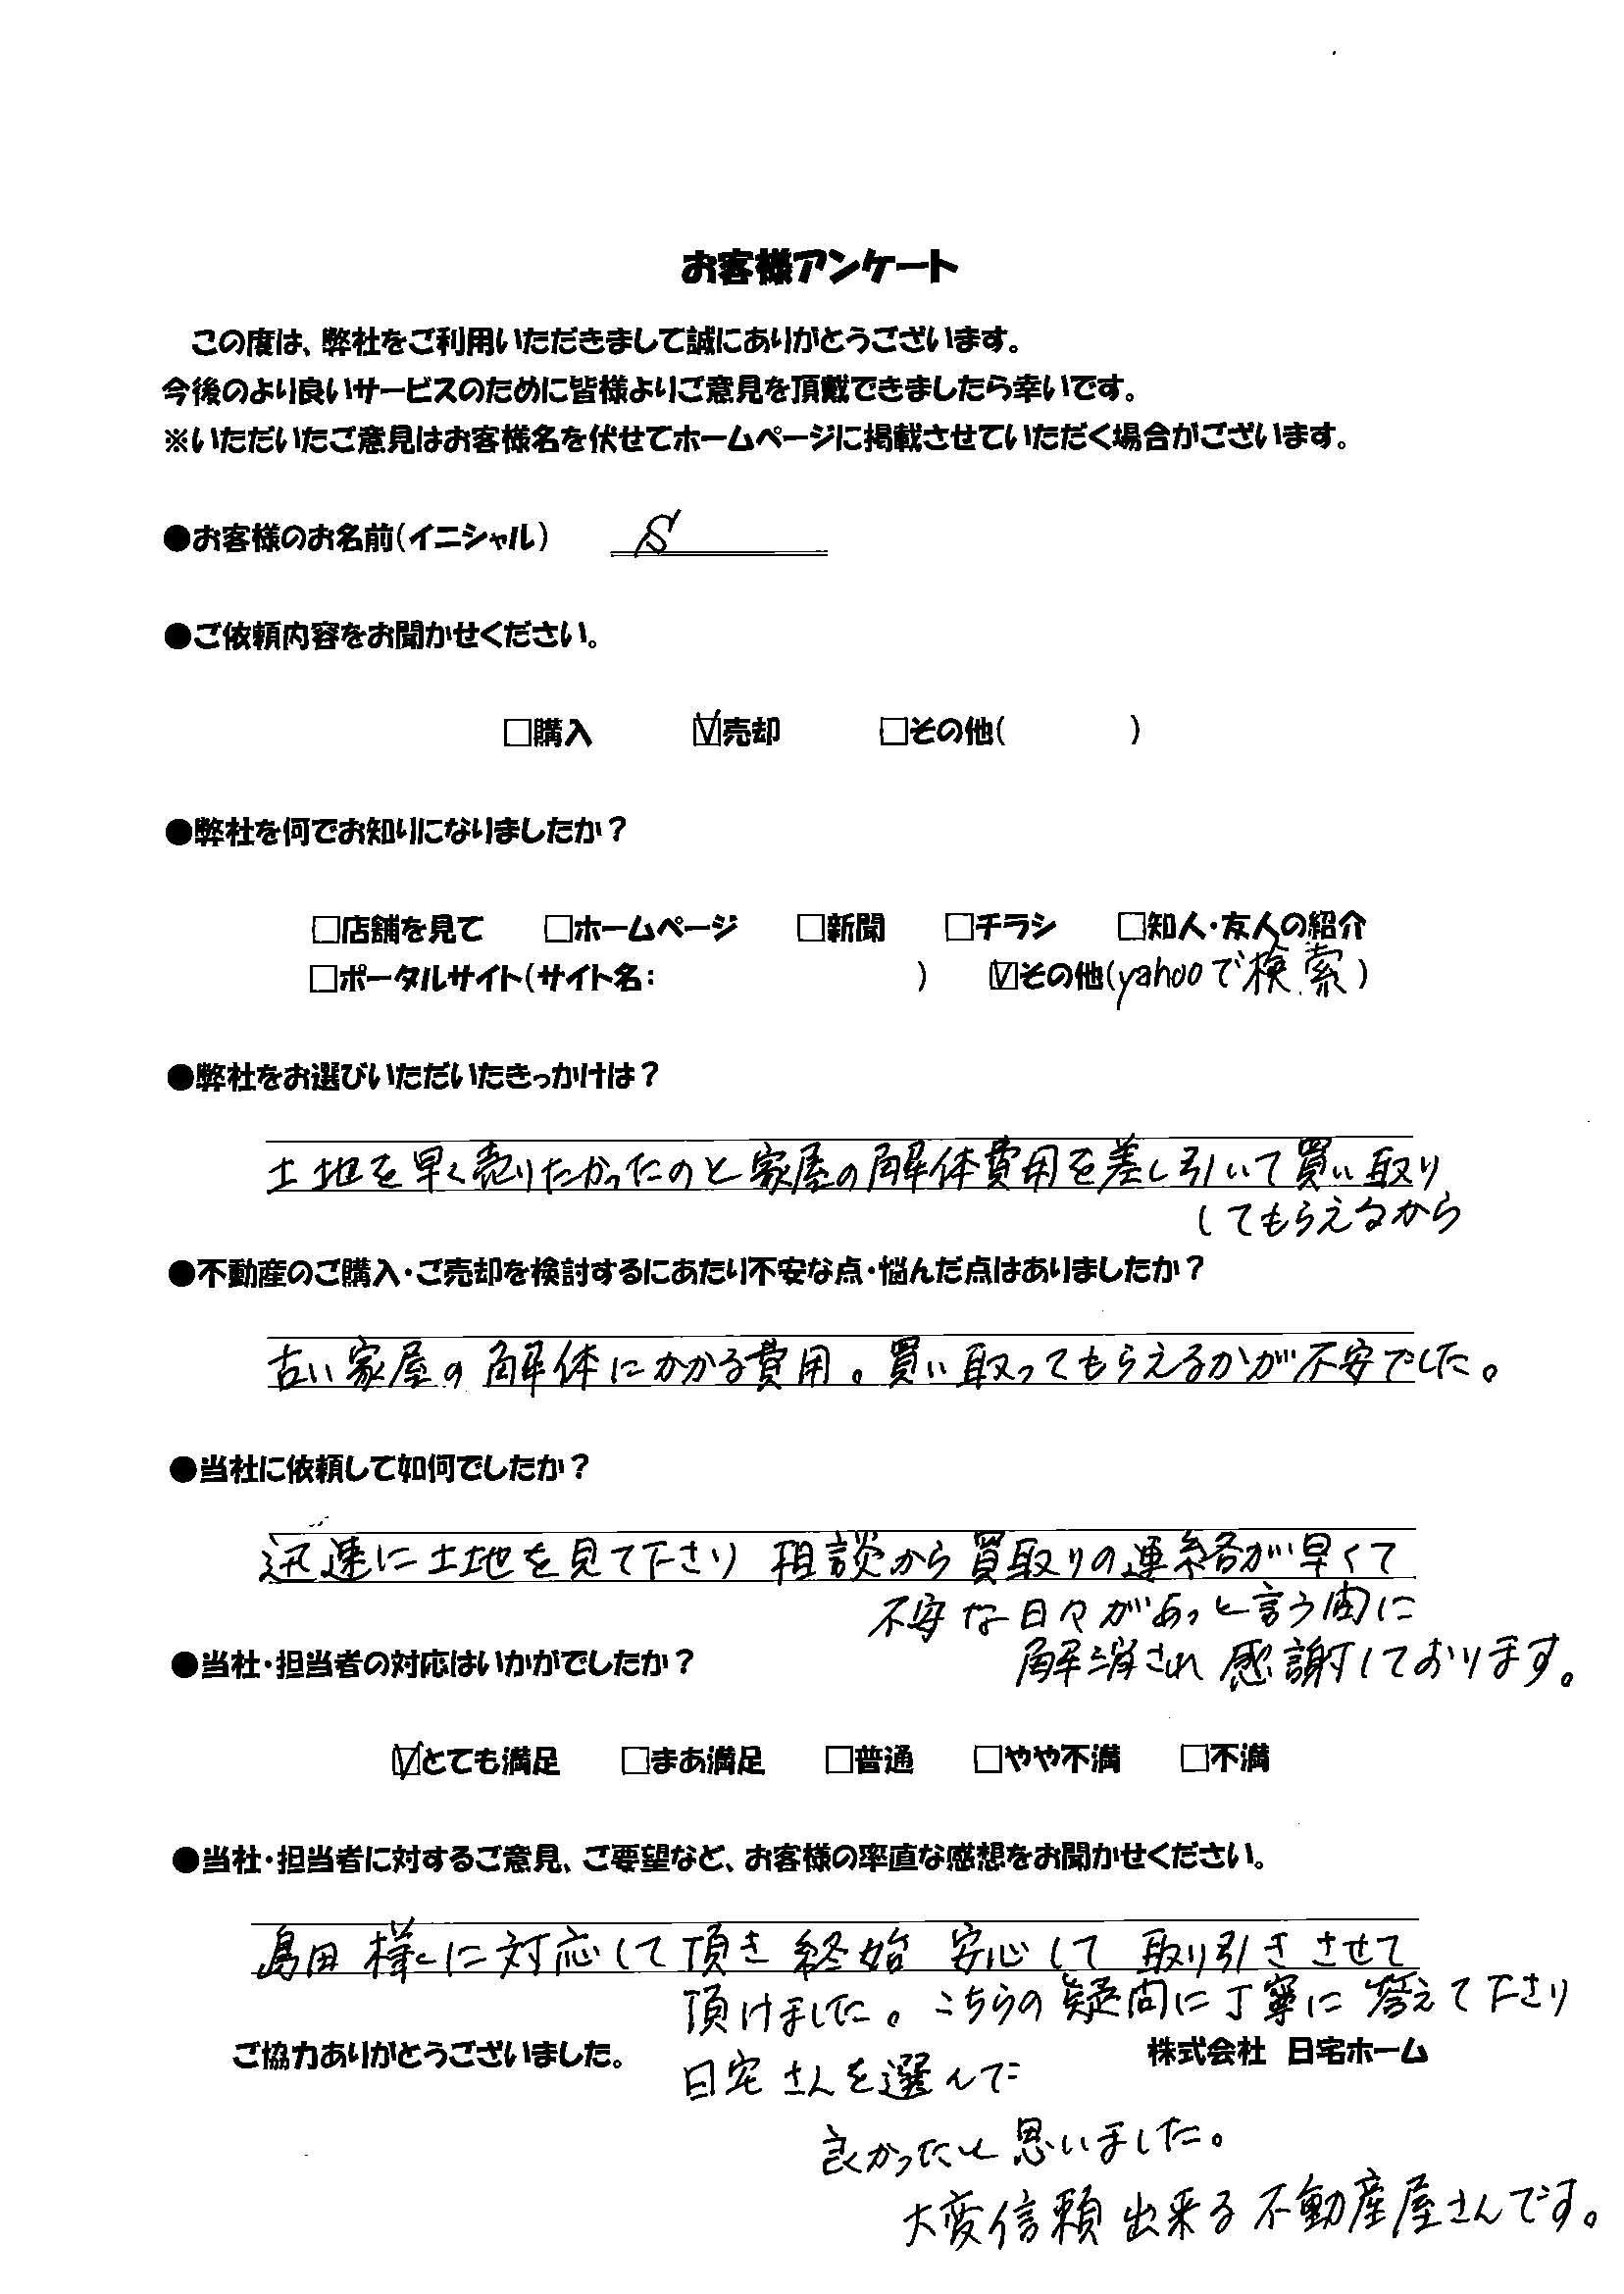 お客様アンケート
この度は、弊社をご利用いただきまして誠にありがとうございます。
今後のより良いサービスのために皆様よりご意見を頂戴できましたら幸いです。
※いただいたご意見はお客様名を伏せてホームページに掲載させていただく場合がございます。
●お客様のお名前(イニシャル) S
●ご依頼内容をお聞かせください。
□購入 ☑売却 □その他( )
●弊社を何でお知りになりましたか？
□店舗を見て □ホームページ □新聞 □チラシ □知人・友人の紹介
□ポータルサイト(サイト名: ) ☑その他(yahooで検索)
●弊社をお選びいただいたきっかけは？
土地を早く売りたかったのと家屋の解体費用を差し引いて買い取り
してもらえるから
●不動産のご購入・ご売却を検討するにあたり不安な点・悩んだ点はありましたか？
古い家屋の解体にかかる費用。買い取ってもらえるかが不安でした。
●当社に依頼して如何でしたか？
迅速に土地を見て下さり 相談から買取りの連絡が早くて
不安な日々があっと言う間に
解消され感謝しております。
●当社・担当者の対応はいかがでしたか？
☑とても満足 □まあ満足 □普通 □やや不満 □不満
●当社・担当者に対するご意見、ご要望など、お客様の率直な感想をお聞かせください。
島田様に対応して頂き終始 安心して 取り引きさせて
頂けました。こちらの疑問に丁寧に答えて下さり
日宅さんを選んで
良かったと思いました。
大変信頼出来る不動産屋さんです。
ご協力ありがとうございました。
株式会社 日宅ホーム